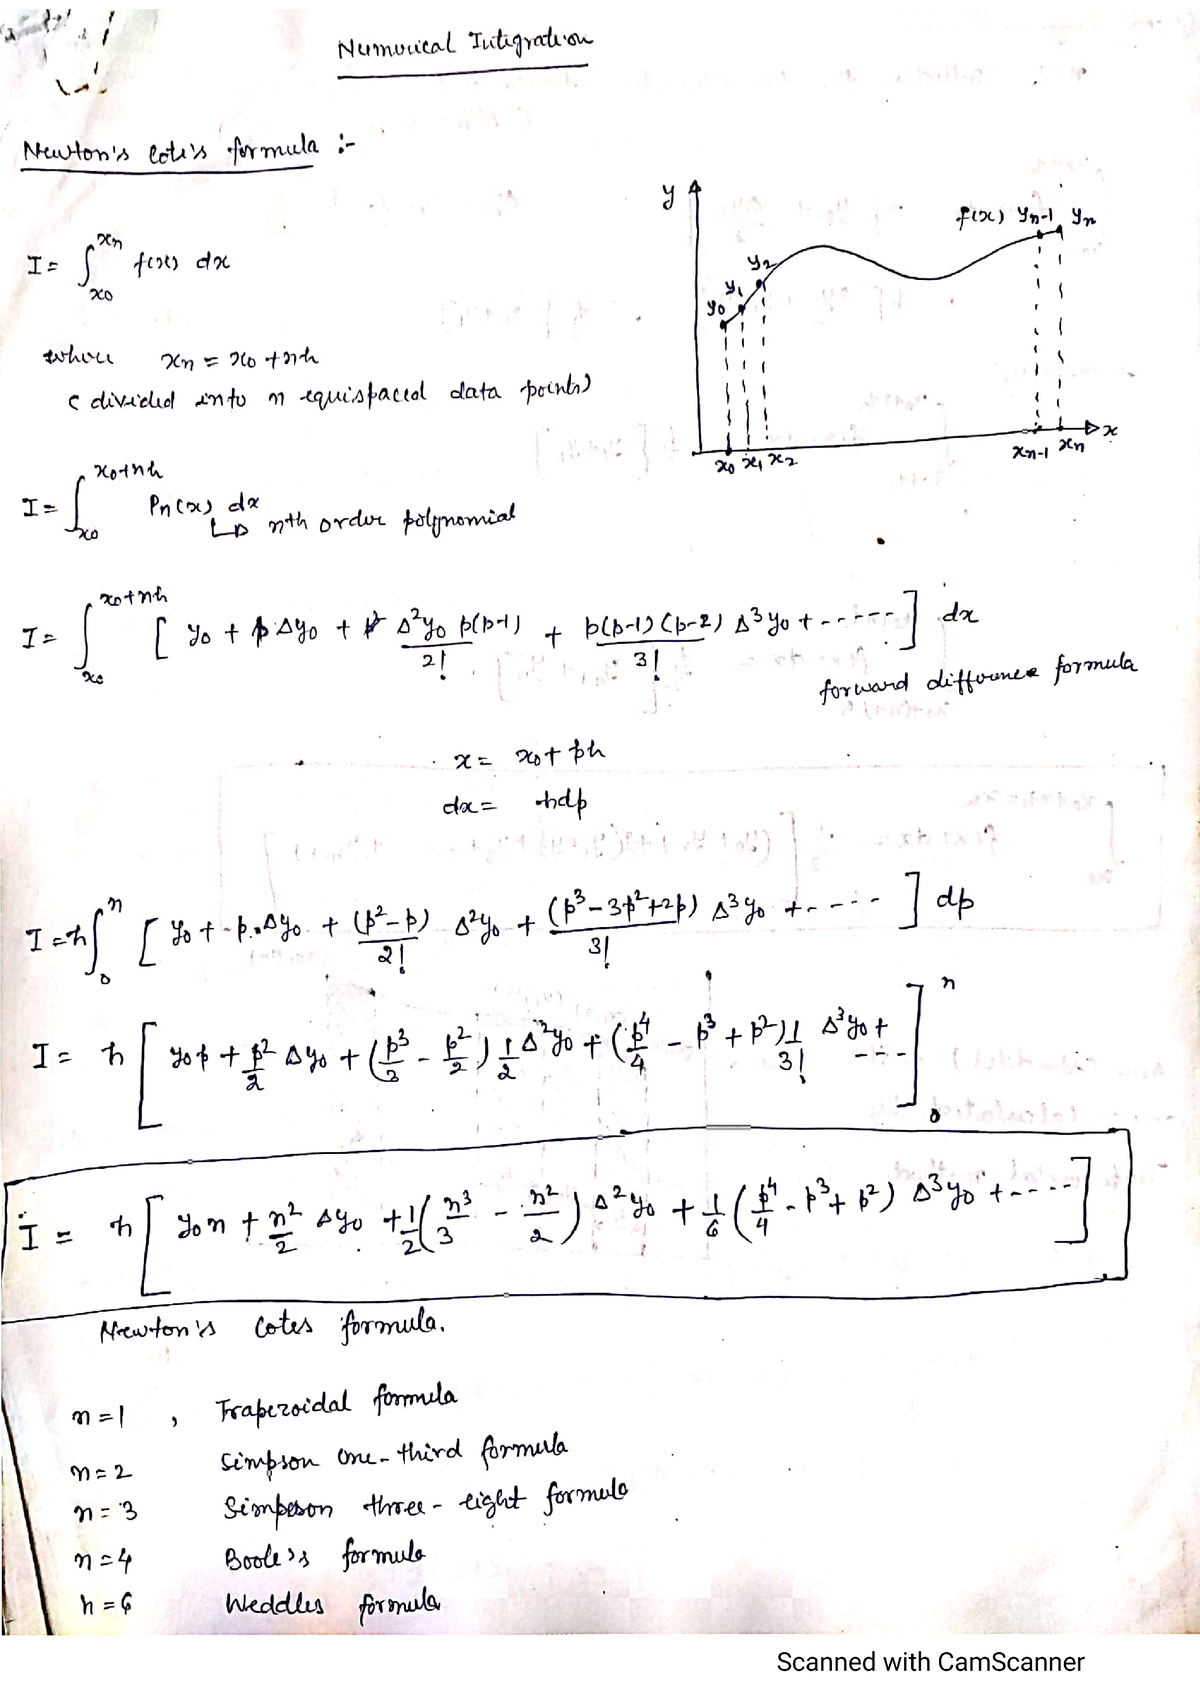 Numerical Integration
Newton's Cote's formula :-
I = ∫_{x0}^{xn} f(x) dx
where xn = x0 + nh
( divided into n equispaced data points)
y
y0 y1 y2
f(x) yn-1 yn
x0 x1 x2
xn-1 xn
x
I = ∫_{x0}^{x0+nh} Pn(x) dx
↳ nth order polynomial
I = ∫_{x0}^{x0+nh} [ y0 + p Δy0 + Δ²y0 p(p-1)/2! + p(p-1)(p-2)/3! Δ³y0 + ------ ] dx
forward difference formula
x = x0 + ph
dx = hdp
I = h∫_0^n [ y0 + p.Δy0 + (p²-p)/2! Δ²y0 + (p³-3p²+2p)/3! Δ³y0 + ----- ] dp
I = h [ y0p + p²/2 Δy0 + (p³/3 - p²/2) 1/2 Δ²y0 + (p⁴/4 - p³ + p²) 1/3! Δ³y0 + --- ]_0^n
I = h [ y0n + n²/2 Δy0 + 1/2 (n³/3 - n²/2) Δ²y0 + 1/6 (p⁴/4 - p³ + p²) Δ³y0 + ---- ]
Newton's Cotes formula.
n=1 , Trapezoidal formula
n=2 Simpson one-third formula
n=3 Simpson three-eight formula
n=4 Boole's formula
n=6 Weddles formula
Scanned with CamScanner